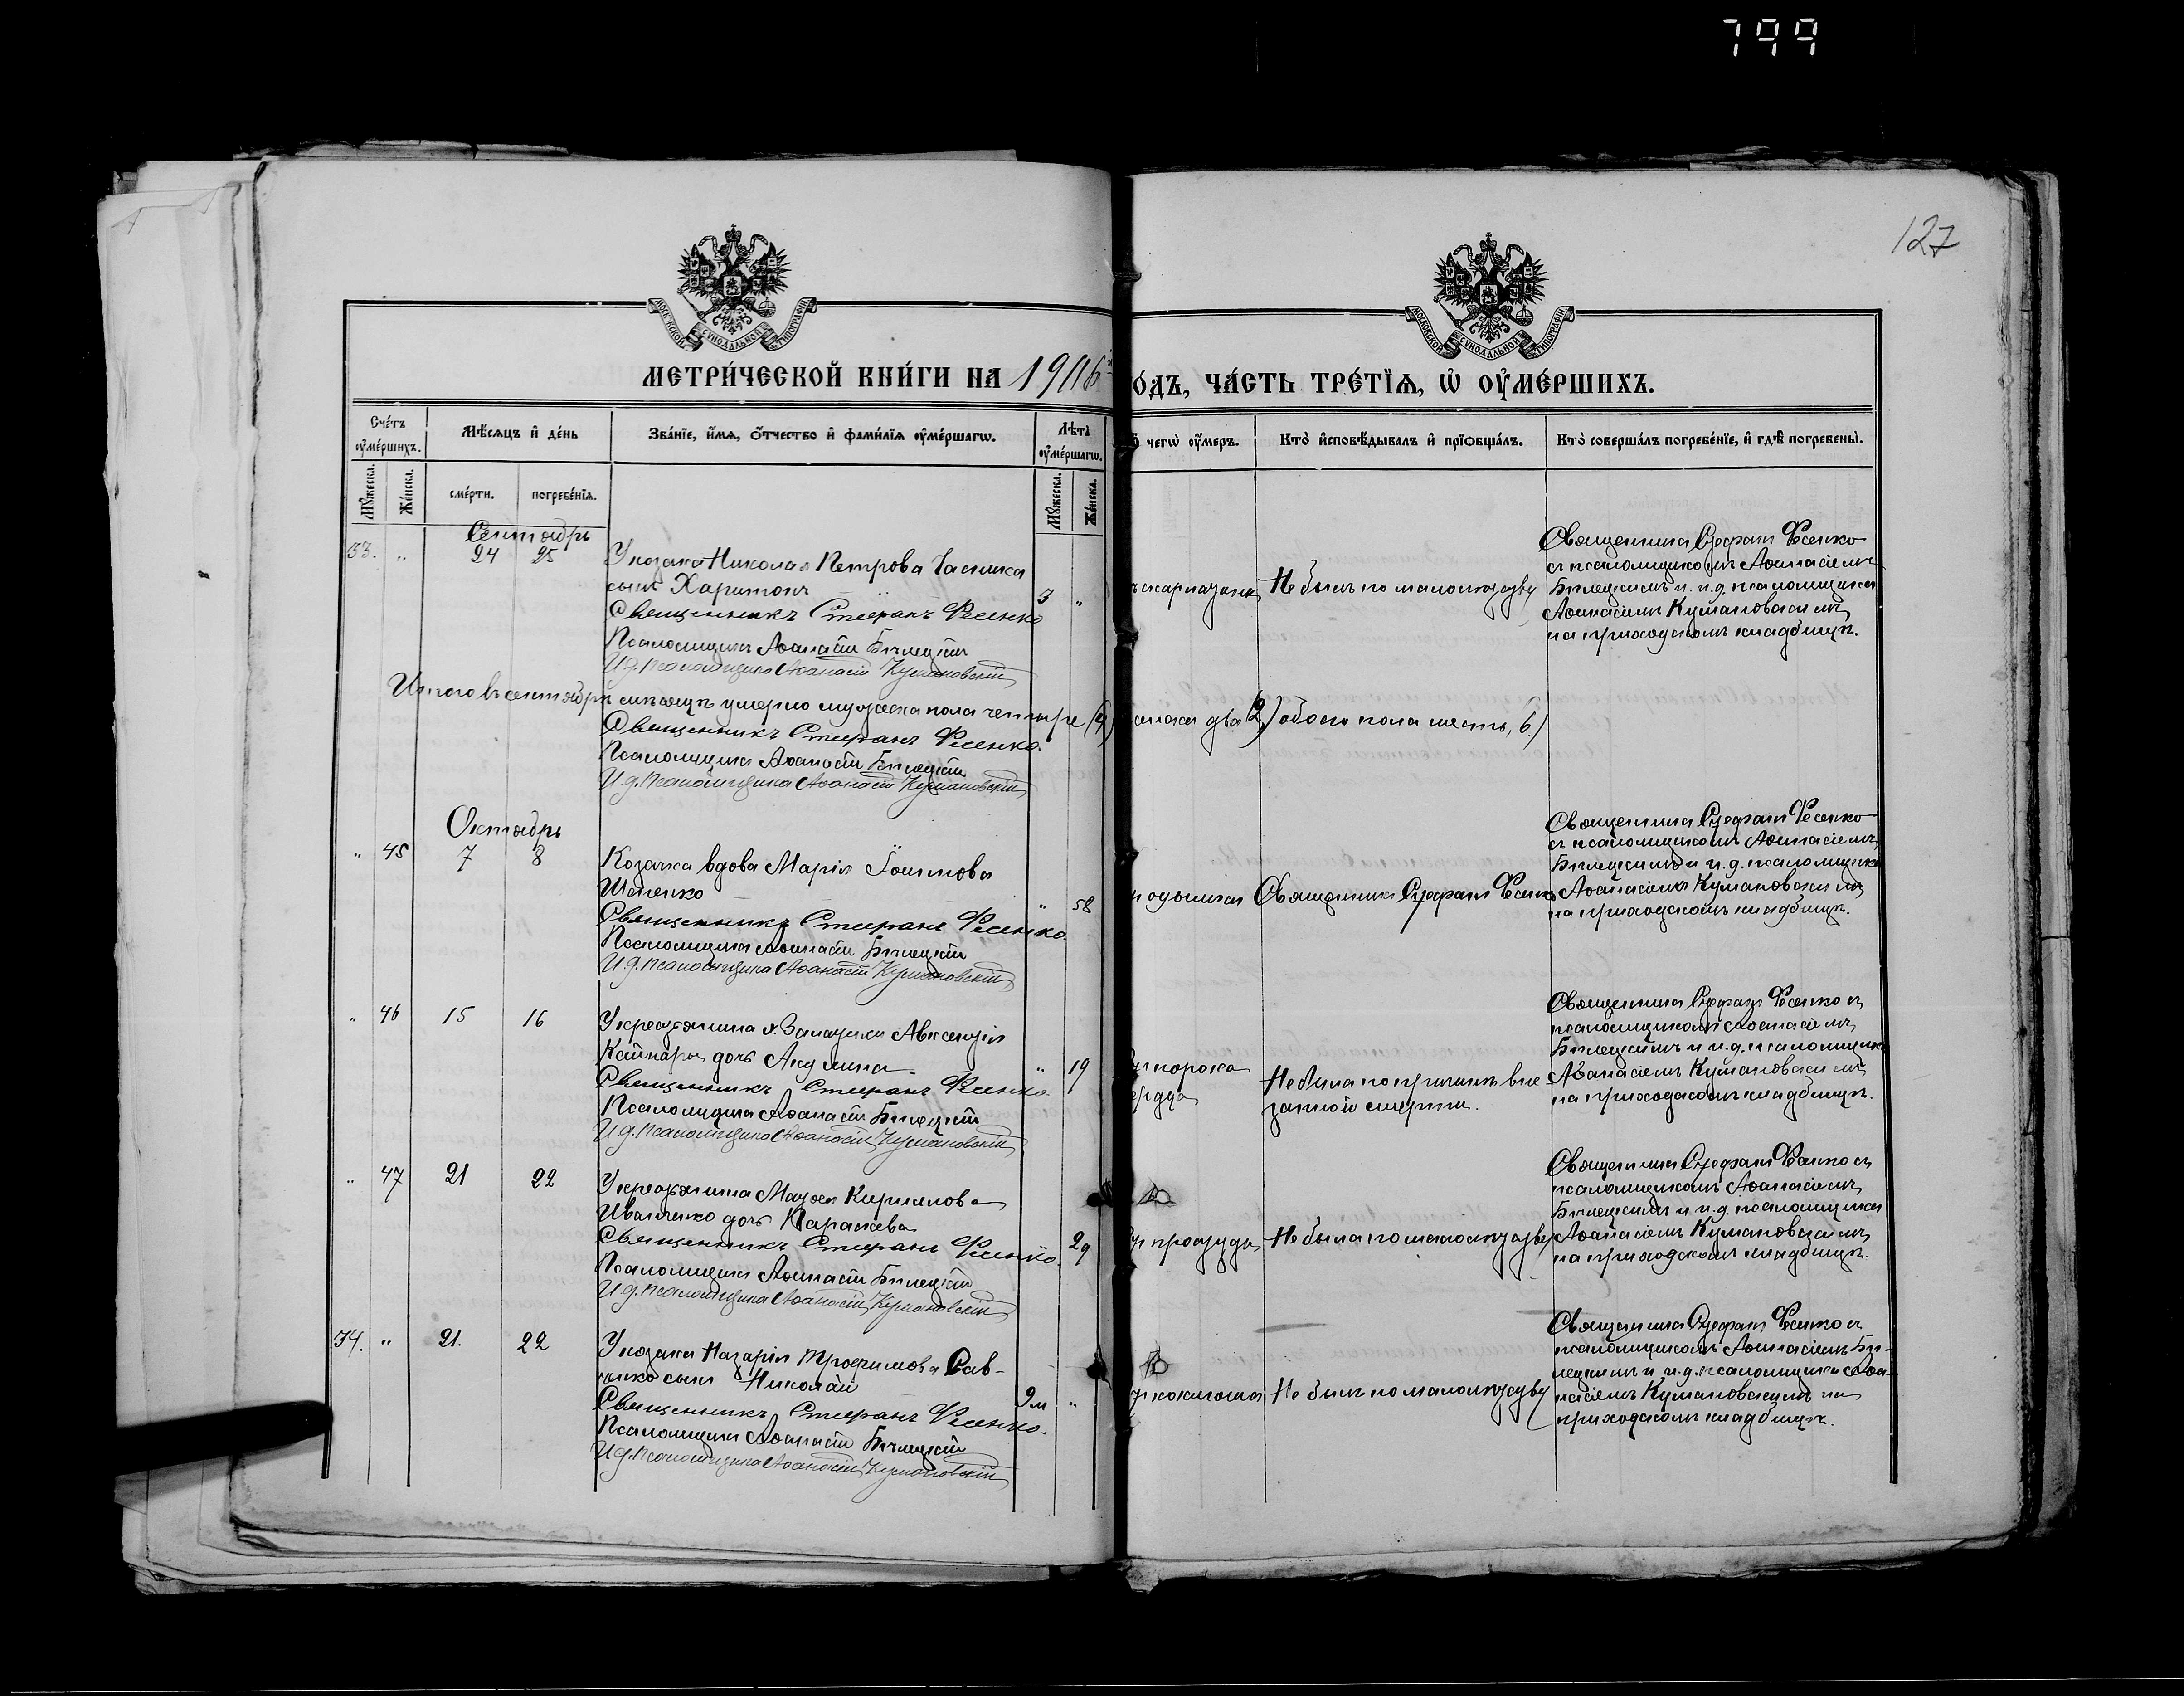 799
127
МОСКОВСКОЙ СѴНОДАЛЬНОЙ ТИПОГРАФІИ
МОСКОВСКОЙ СѴНОДАЛЬНОЙ ТИПОГРАФІИ
МЕТРИ́ЧЕСКОЙ КНИ́ГИ НА 1916й
О́ДЪ, ЧА́СТЬ ТРЕ́ТЇѦ, Ѡ҆ ОУ҆МЕ́РШИХЪ.
Сче́тъ оу҆ме́ршихъ.
Мѣ́сѧцъ и҆ де́нь
Зва́нїе, и҆́мѧ, ѻ҆́тчество и҆ фами́лїѧ оу҆ме́ршагѡ.
Лѣ́та оу҆ме́ршагѡ.
чегѡ̀ оу҆́меръ.
Кто̀ и҆сповѣ́дывалъ и҆ прїѡбща́лъ.
Кто̀ соверша́лъ погребе́нїе, и҆ гдѣ̀ погребены̀.
Мꙋ́жеска.
Же́нска.
сме́рти.
погребе́нїѧ.
Мꙋ́жеска.
Же́нска.
Сентябрь
33. " 24 25
У козака Николая Петрова Часника
сынъ Харитонъ
3 "
Священникъ Стефанъ Фесенко
Псаломщикъ Аѳанасій Бѣлецкій
И.д. псаломщика Аѳанасій Кумановскій
скарлатины
Не былъ по малолѣтству
Священникъ Стефанъ Фесенко
съ псаломщикомъ Аѳанасіемъ
Бѣлецкимъ и и.д. псаломщика
Аѳанасіемъ Кумановскимъ
на приходскомъ кладбищѣ.
Итого въ сентябрѣ мѣсяцѣ умерло мужеска пола четыре (4)
женска два (2) обоего пола шесть (6.)
Священникъ Стефанъ Фесенко.
Псаломщикъ Аѳанасій Бѣлецкій
И.д. псаломщика Аѳанасій Кумановскій
Октябрь
" 45 7 8
Козачка вдова Марія Іоакимова
" 58
Священникъ Стефанъ Фесенко.
Псаломщикъ Аѳанасій Бѣлецкій
И.д. псаломщика Аѳанасій Кумановскій
одышки
Священникъ Стефанъ Фесенко
Священникъ Стефанъ Фесенко
съ псаломщикомъ Аѳанасіемъ
Бѣлецкимъ и и.д. псаломщика
Аѳанасіемъ Кумановскимъ
на приходскомъ кладбищѣ.
" 46 15 16
У крестьянина Авксентія
дочь Акулина
" 19
Священникъ Стефанъ Фесенко.
Псаломщикъ Аѳанасій Бѣлецкій
И.д. псаломщика Аѳанасій Кумановскій
порока
сердца
Не была по причинѣ вне
запной смерти.
Священникъ Стефанъ Фесенко съ
псаломщикомъ Аѳанасіемъ
Бѣлецкимъ и и.д. псаломщика
Аѳанасіемъ Кумановскимъ
на приходскомъ кладбищѣ.
" 47 21 22
У крестьянина Матѳея Кириллова
Иванченко дочь Параскева
Священникъ Стефанъ Фесенко.
Псаломщикъ Аѳанасій Бѣлецкій
И.д. псаломщика Аѳанасій Кумановскій
простуды
Не была по малолѣтству
Священникъ Стефанъ Фесенко съ
псаломщикомъ Аѳанасіемъ
Бѣлецкимъ и и.д. псаломщика
Аѳанасіемъ Кумановскимъ
на приходскомъ кладбищѣ.
34. " 21. 22
У козака Назарія Трофимова Сав-
ченко сынъ Николай
9м "
Священникъ Стефанъ Фесенко.
Псаломщикъ Аѳанасій Бѣлецкій
И.д. псаломщика Аѳанасій Кумановскій
коклюша
Не былъ по малолѣтству
Священникъ Стефанъ Фесенко съ
псаломщикомъ Аѳанасіемъ Бѣ-
лецкимъ и и.д. псаломщика Аѳа-
насіемъ Кумановскимъ на
приходскомъ кладбищѣ.